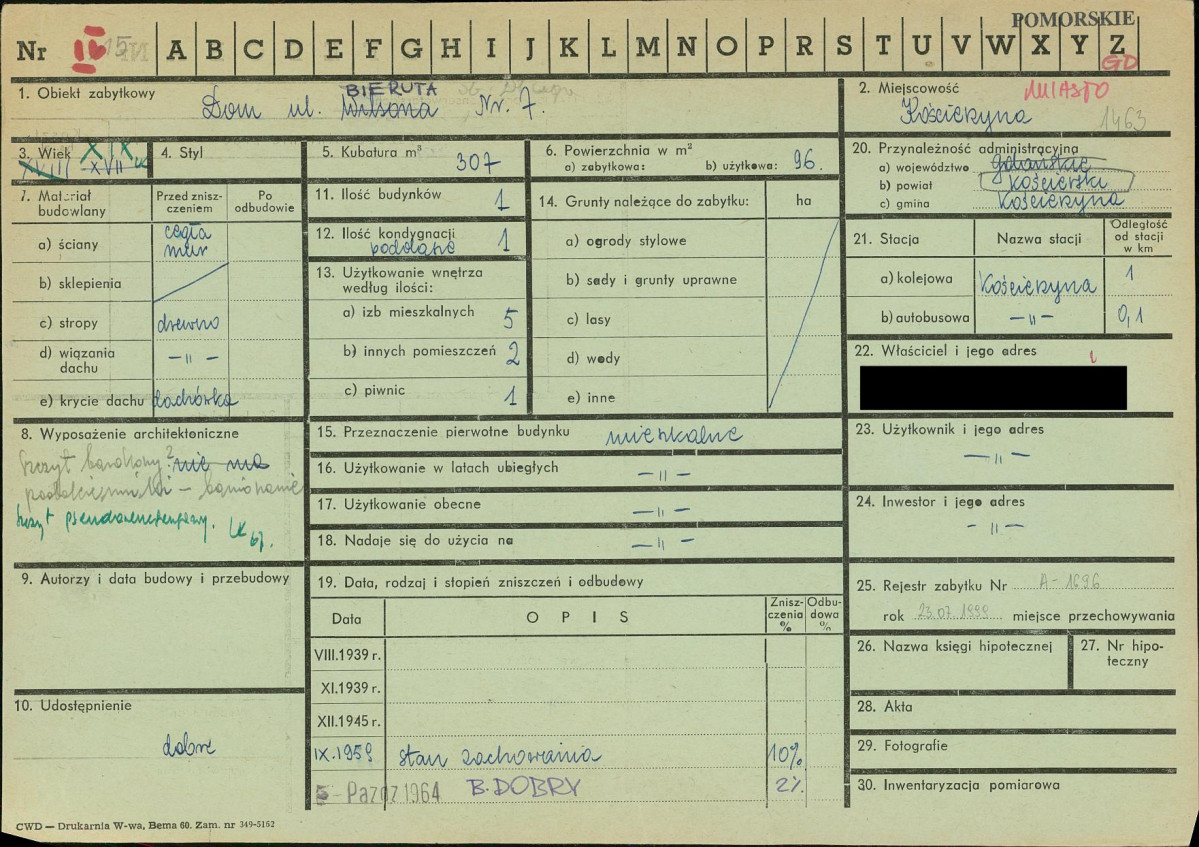 POMORSKIE
Nr IV 15 A B C D E F G H I J K L M N O P R S T U V W X Y Z
GD
1. Obiekt zabytkowy
BIERUTA
Dom ul. Wilsona Nr. 7.
2. Miejscowość MIASTO
Kościerzyna 1463
3. Wiek XIX
XVIII XVII
4. Styl
5. Kubatura m³ 307
6. Powierzchnia w m²
a) zabytkowa: b) użytkowa: 96.
7. Materiał budowlany
Przed zniszczeniem
Po odbudowie
a) ściany cegła mur
b) sklepienia
c) stropy drewno
d) wiązania dachu –"–
e) krycie dachu dachówka
8. Wyposażenie architektoniczne
szczyt barokowy? nie ma
szczyt pseudorenesansowy. LK 67.
9. Autorzy i data budowy i przebudowy
10. Udostępnienie
dobre
11. Ilość budynków 1
12. Ilość kondygnacji 1
poddasze
13. Użytkowanie wnętrza według ilości:
a) izb mieszkalnych 5
b) innych pomieszczeń 2
c) piwnic 1
14. Grunty należące do zabytku: ha
a) ogrody stylowe
b) sady i grunty uprawne
c) lasy
d) wody
e) inne
15. Przeznaczenie pierwotne budynku mieszkalne
16. Użytkowanie w latach ubiegłych –"–
17. Użytkowanie obecne –"–
18. Nadaje się do użycia na –"–
19. Data, rodzaj i stopień zniszczeń i odbudowy
Data
O P I S
Zniszczenia %
Odbudowa %
VIII.1939 r.
XI.1939 r.
XII.1945 r.
IX.1959 stan zachowania 10%
5 - Paźdz 1964 B. DOBRY 2%
20. Przynależność administracyjna
a) województwo gdańskie
b) powiat kościerski
c) gmina Kościerzyna
21. Stacja
Nazwa stacji
Odległość od stacji w km
a) kolejowa Kościerzyna 1
b) autobusowa –"– 0,1
22. Właściciel i jego adres
23. Użytkownik i jego adres
–"–
24. Inwestor i jego adres
–"–
25. Rejestr zabytku Nr A-1696
rok 23.07.1999 miejsce przechowywania
26. Nazwa księgi hipotecznej
27. Nr hipoteczny
28. Akta
29. Fotografie
30. Inwentaryzacja pomiarowa
CWD — Drukarnia W-wa, Bema 60. Zam. nr 349-5162